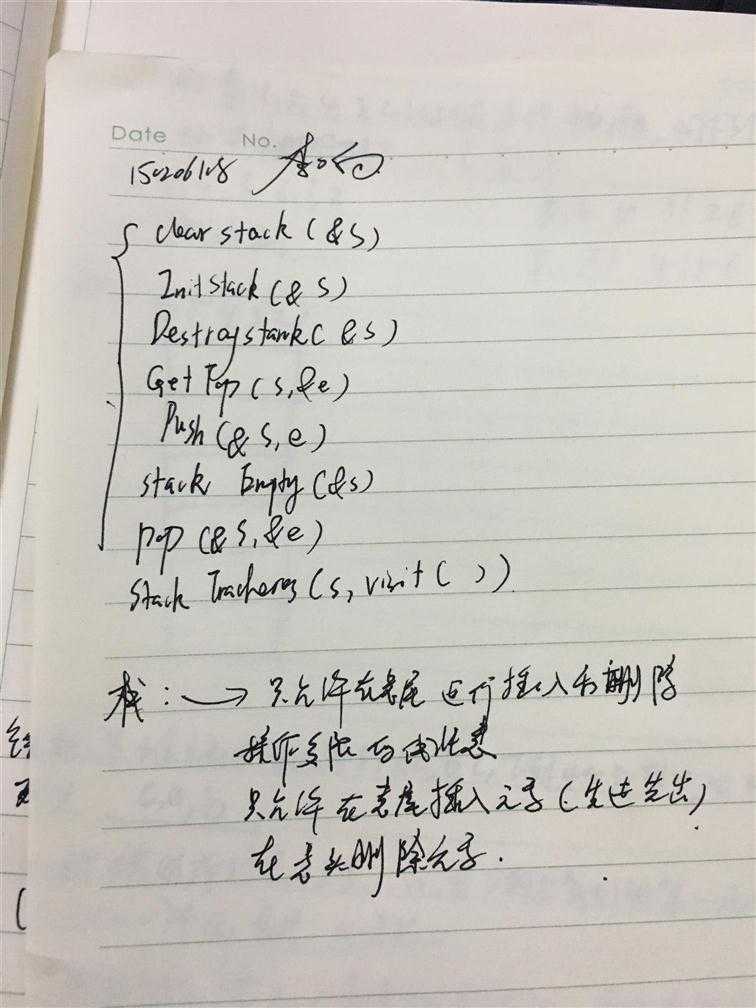 Date No.
150206108 李白
clear stack (&S)
Init Stack (& S)
Destroystank( &s)
Get Top (s,&e)
Push (& S, e)
stack Empty (&s)
pop (& S, &e)
Stack (s, visit( ))
栈: → 只允许在表尾进行插入和删除
操作 的线性表
只允许在表尾插入元素(先进先出)
在表头删除元素.